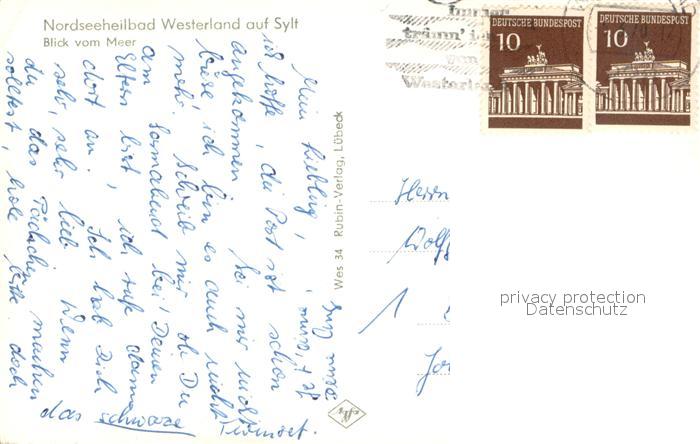 Nordseeheilbad Westerland auf Sylt
Blick vom Meer
Mein Liebling!
ich hoffe, die Post ist schon
angekommen. Sei mir nicht
böse, ich bin es auch nicht
mehr. Schreib mir, ob Du
am Sonnabend bei Deinen
Eltern bist, ich rufe dann
dort an. Ich hab Dich
sehr, sehr lieb. Wenn
du das Päckchen machen
solltest, hole bitte doch
das schwarze
Wes 34 Rubin-Verlag, Lübeck
DEUTSCHE BUNDESPOST
10
DEUTSCHE BUNDESPOST
10
Westerland
Herrn
privacy protection
Datenschutz